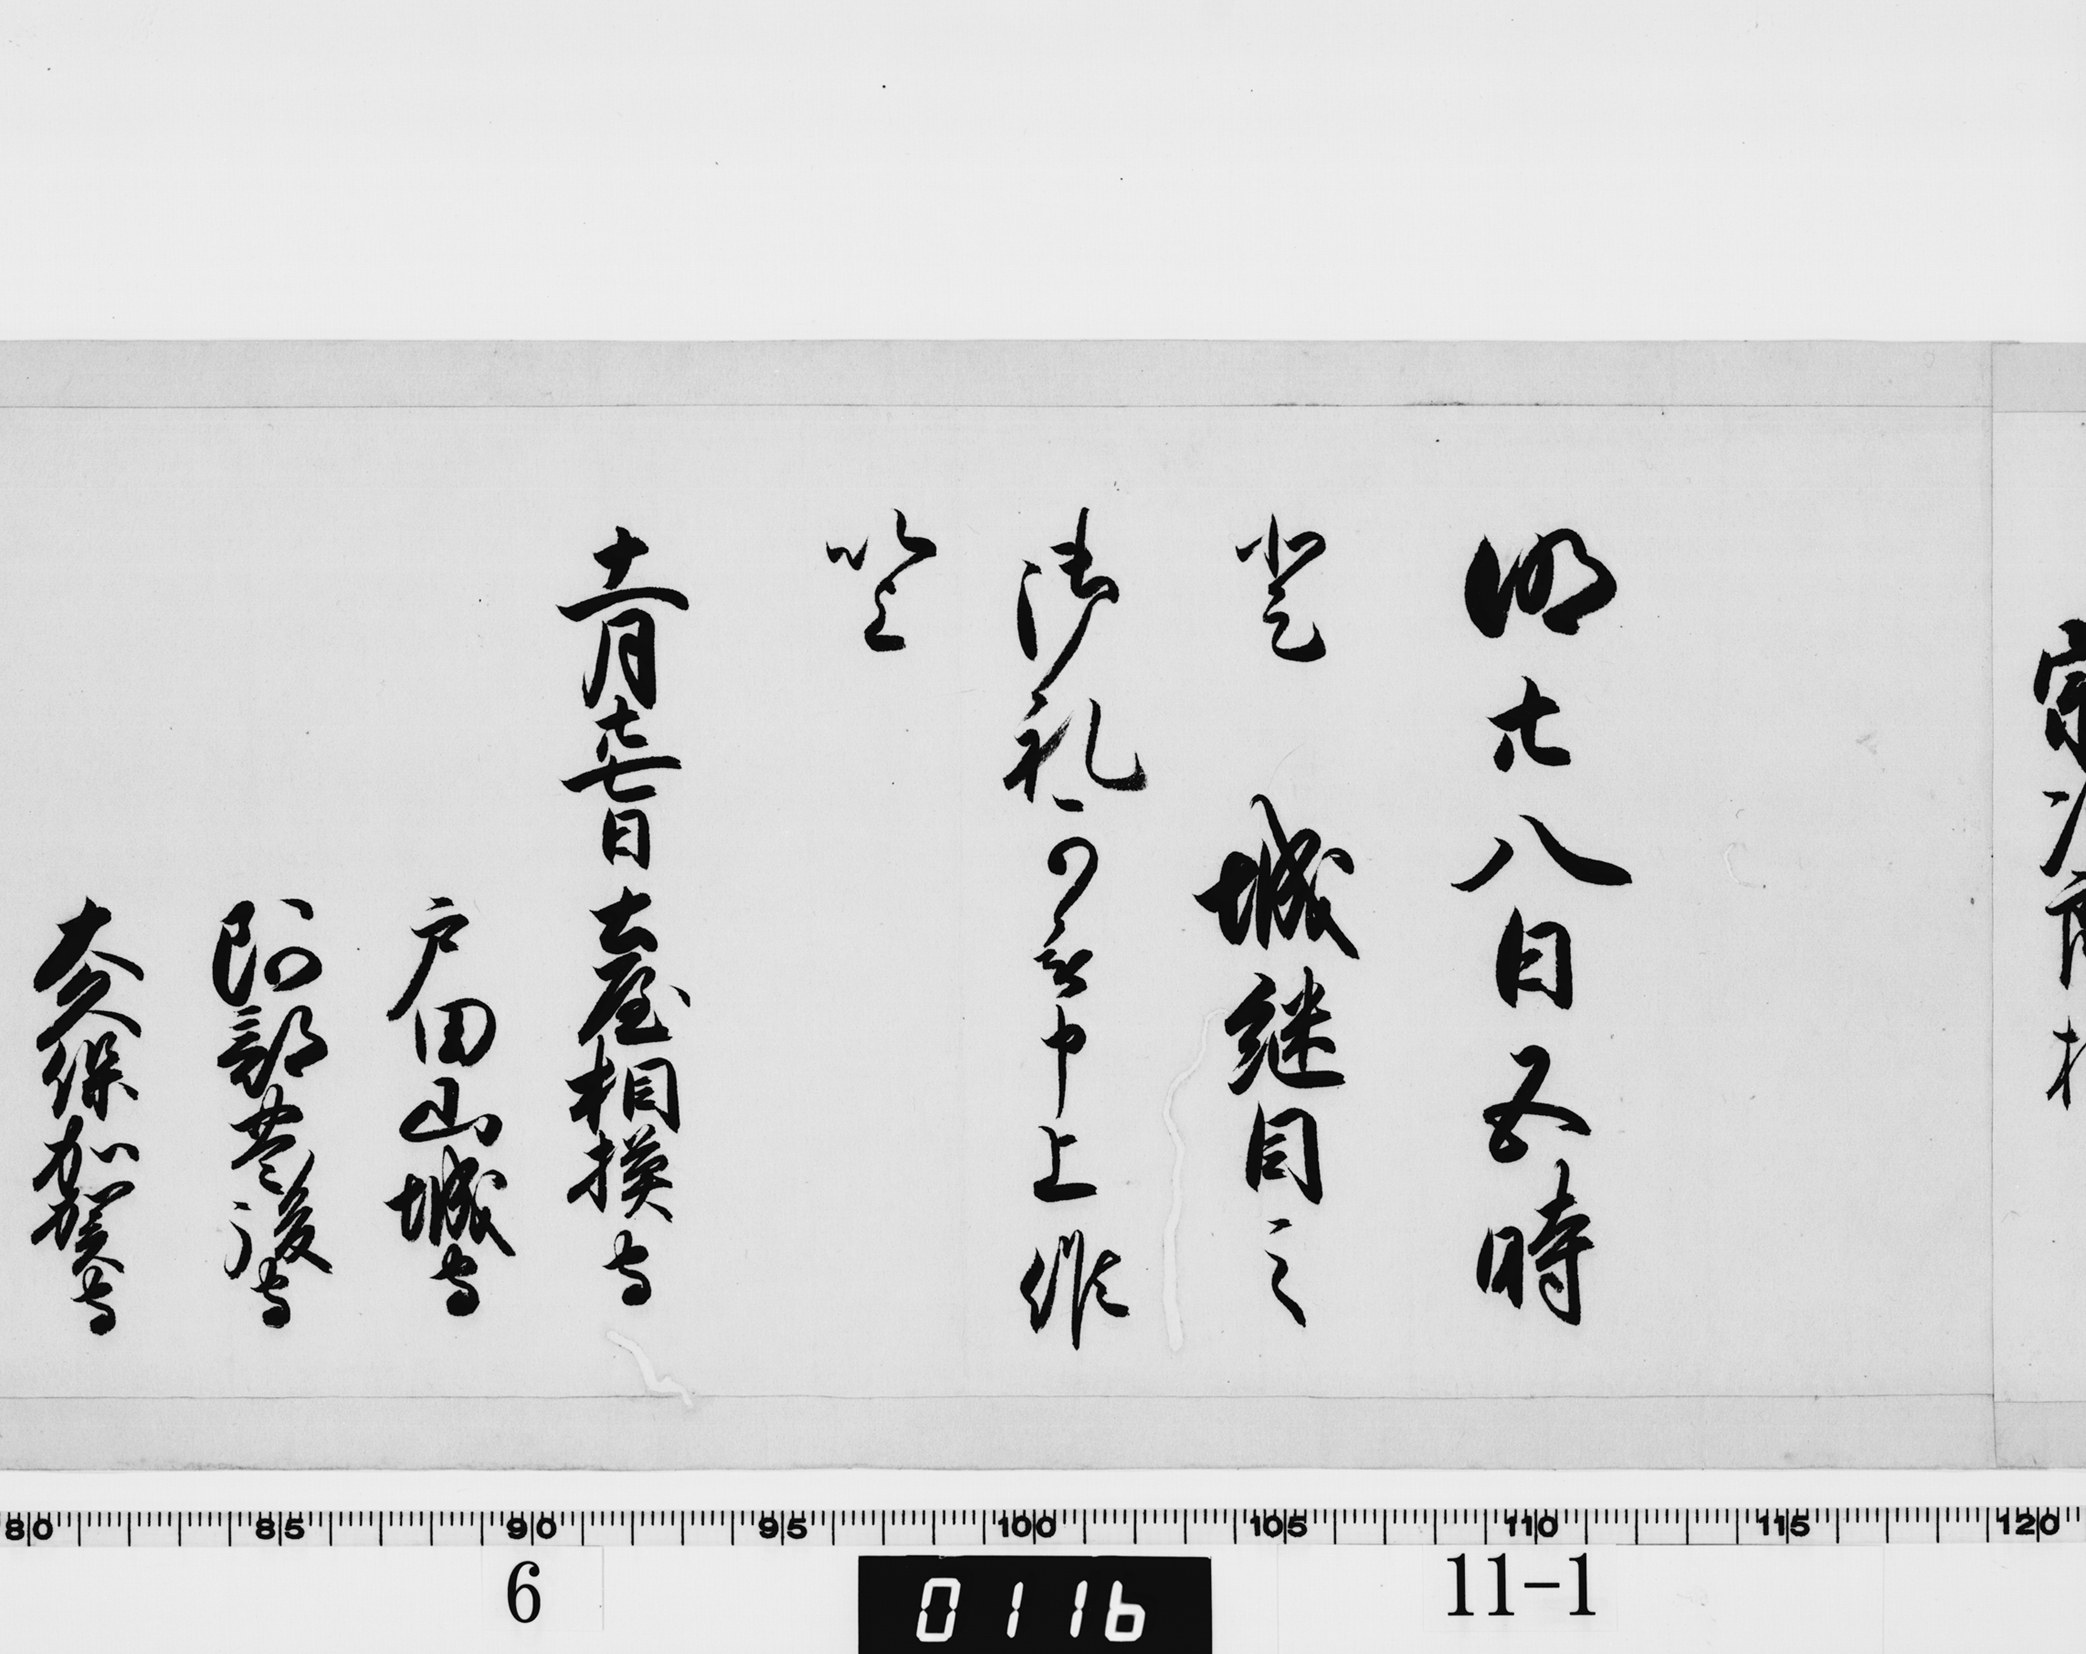 明廿八日五時
登 城継目之
御礼可被申上候
以上
十一月廿七日 土屋相摸守
戸田山城守
阿部豊後守
大久保加賀守
80 85 90 95 100 105 110 115 120
6 0116 11-1